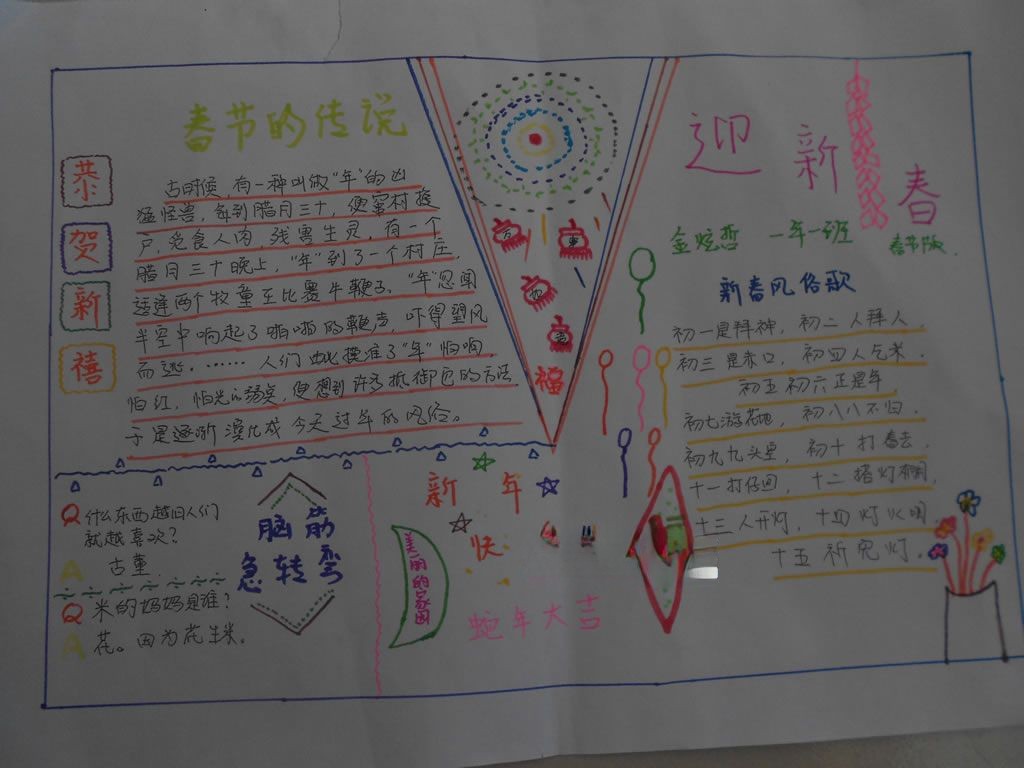 春节的传说
恭
贺
新
禧
古时候,有一种叫做“年”的凶
猛怪兽,每到腊月三十,便窜村挨
户,觅食人肉,残害生灵,有一个
腊月三十晚上,“年”到了一个村庄,
适逢两个牧童在比赛牛鞭子,“年”忽闻
半空中响起了啪啪的鞭声,吓得望风
而逃.…… 人们 摸准了“年”怕响,
怕红,怕光的弱点,便想到许多抵御它的方法,
于是逐渐演化成今天过年的风俗。
福
迎新春
金炫哲 一年一班 春节版
新春风俗歌
初一是拜神,初二人拜人
初三是赤口,初四人乞米.
初五初六正是年
初七游花地,初八八不归,
初九九头空,初十打春去,
十一打仔回,十二搭灯棚,
十三人开灯,十四灯火明
十五祈完灯.
Q 什么东西越旧人们
就越喜欢?
A 古董
Q 米的妈妈是谁?
A 花。因为花生米.
脑筋
急转弯
新年
快
美丽的家园
蛇年大吉